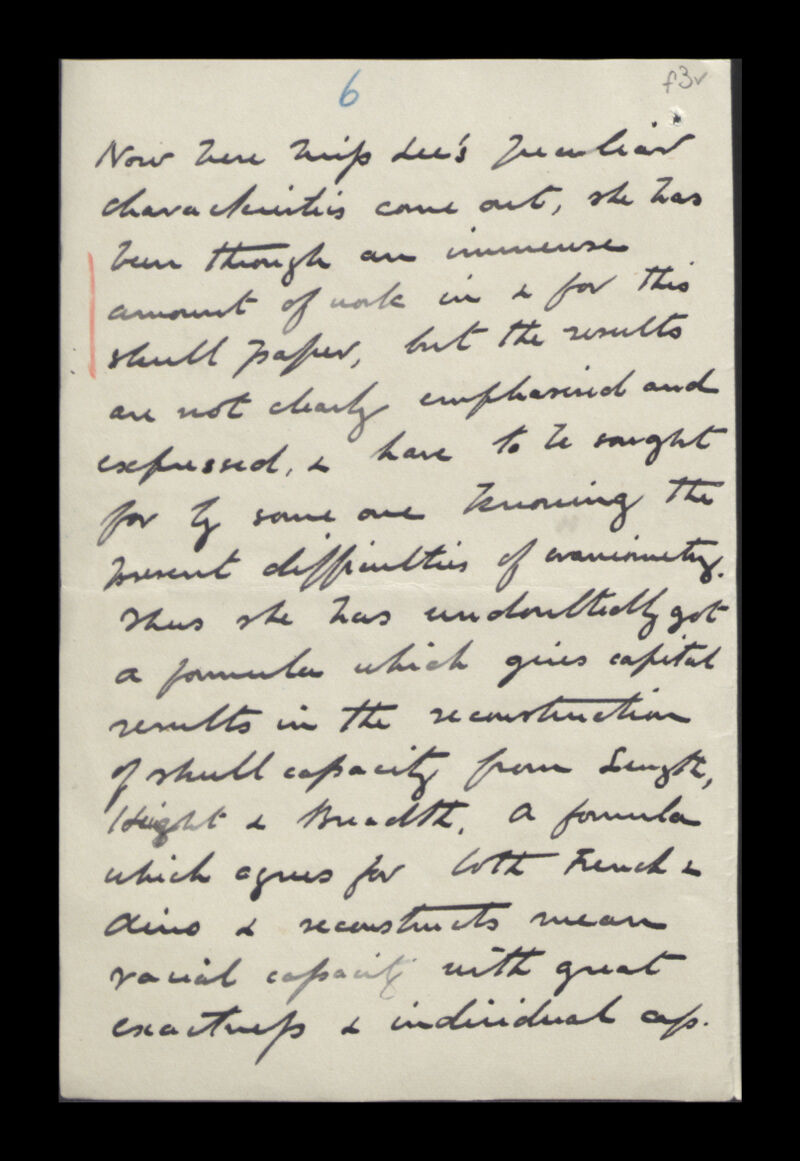 6
f3v
Now here Miss Lee's peculiar
characteristics come out, she has
been through an immense
amount of work in & for this
skull paper, but the results
are not clearly emphasised and
expressed, & have to be sought
for by some one knowing the
present difficulties of craniometry.
Thus she has undoubtedly got
a formula which gives capital
results in the reconstruction
of skull capacity from Length,
Height & Breadth. A formula
which agrees for both French &
Aino & reconstructs mean
racial capacity with great
exactness & individual cap.